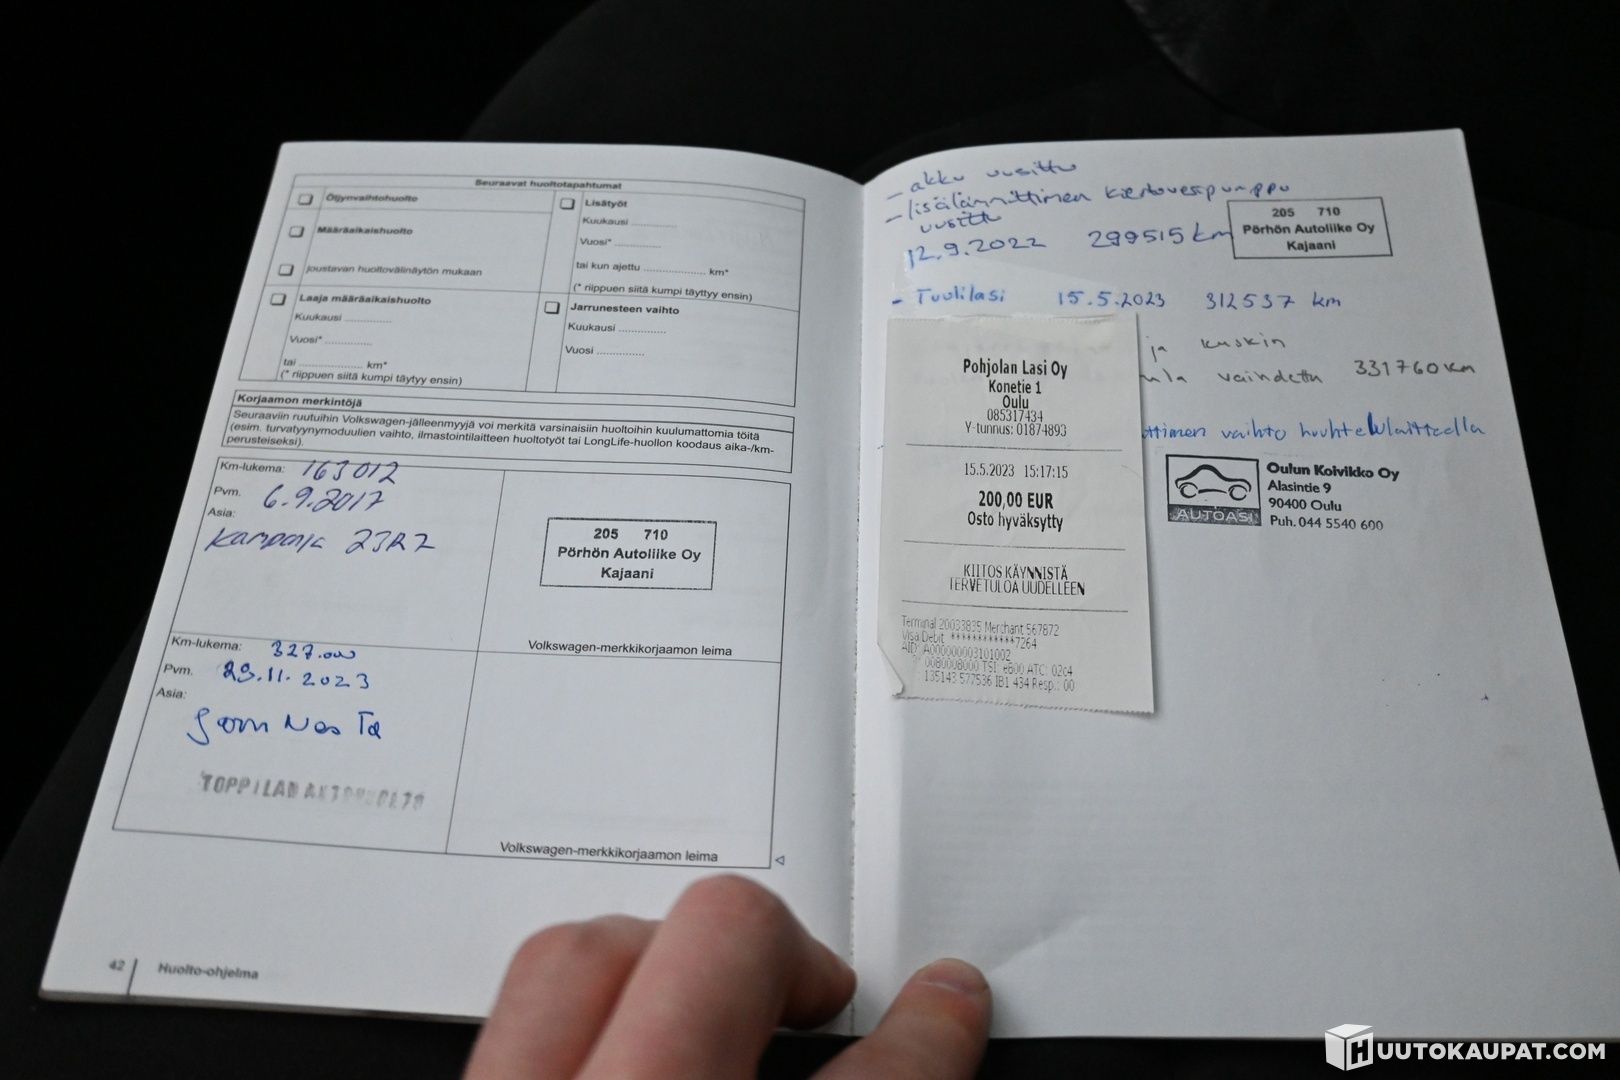 Seuraavat huoltotapahtumat
Öljynvaihtohuolto
Määräaikaishuolto
joustavan huoltovälinäytön mukaan
Laaja määräaikaishuolto
Kuukausi ..............
Vuosi* ..............
tai .................... km*
(* riippuen siitä kumpi täytyy ensin)
Lisätyöt
Kuukausi ..............
Vuosi* ..............
tai kun ajettu .................... km*
(* riippuen siitä kumpi täyttyy ensin)
Jarrunesteen vaihto
Kuukausi ..............
Vuosi ..............
Korjaamon merkintöjä
Seuraaviin ruutuihin Volkswagen-jälleenmyyjä voi merkitä varsinaisiin huoltoihin kuulumattomia töitä
(esim. turvatyynymoduulien vaihto, ilmastointilaitteen huoltotyöt tai LongLife-huollon koodaus aika-/km-
perusteiseksi).
Km-lukema: 163012
Pvm. 6.9.2017
Asia:
Kampanja 23R7
205 710
Pörhön Autoliike Oy
Kajaani
Volkswagen-merkkikorjaamon leima
Km-lukema: 327.000
Pvm. 29.11.2023
Asia:
Volkswagen-merkkikorjaamon leima
42 Huolto-ohjelma
- akku uusittu
- lisälämmittimen kiertovesipumppu
uusittu
12.9.2022 299515 km
205 710
Pörhön Autoliike Oy
Kajaani
- Tuulilasi 15.5.2023 312537 km
ja kuskin
vaihdettu 331760 km
vaihto huuhtelulaitteella
Pohjolan Lasi Oy
Konetie 1
Oulu
085317434
Y-tunnus: 01874893
15.5.2023 15:17:15
200,00 EUR
Osto hyväksytty
KIITOS KÄYNNISTÄ
TERVETULOA UUDELLEEN
Terminal 20033835 Merchant 567872
Visa Debit ************7264
AID: A000000003101002
0080008000 TSI: e800 ATC: 02c4
135143 577536 IB1 434 Resp.: 00
AUTOASI
Oulun Koivikko Oy
Alasintie 9
90400 Oulu
Puh. 044 5540 600
HUUTOKAUPAT.COM